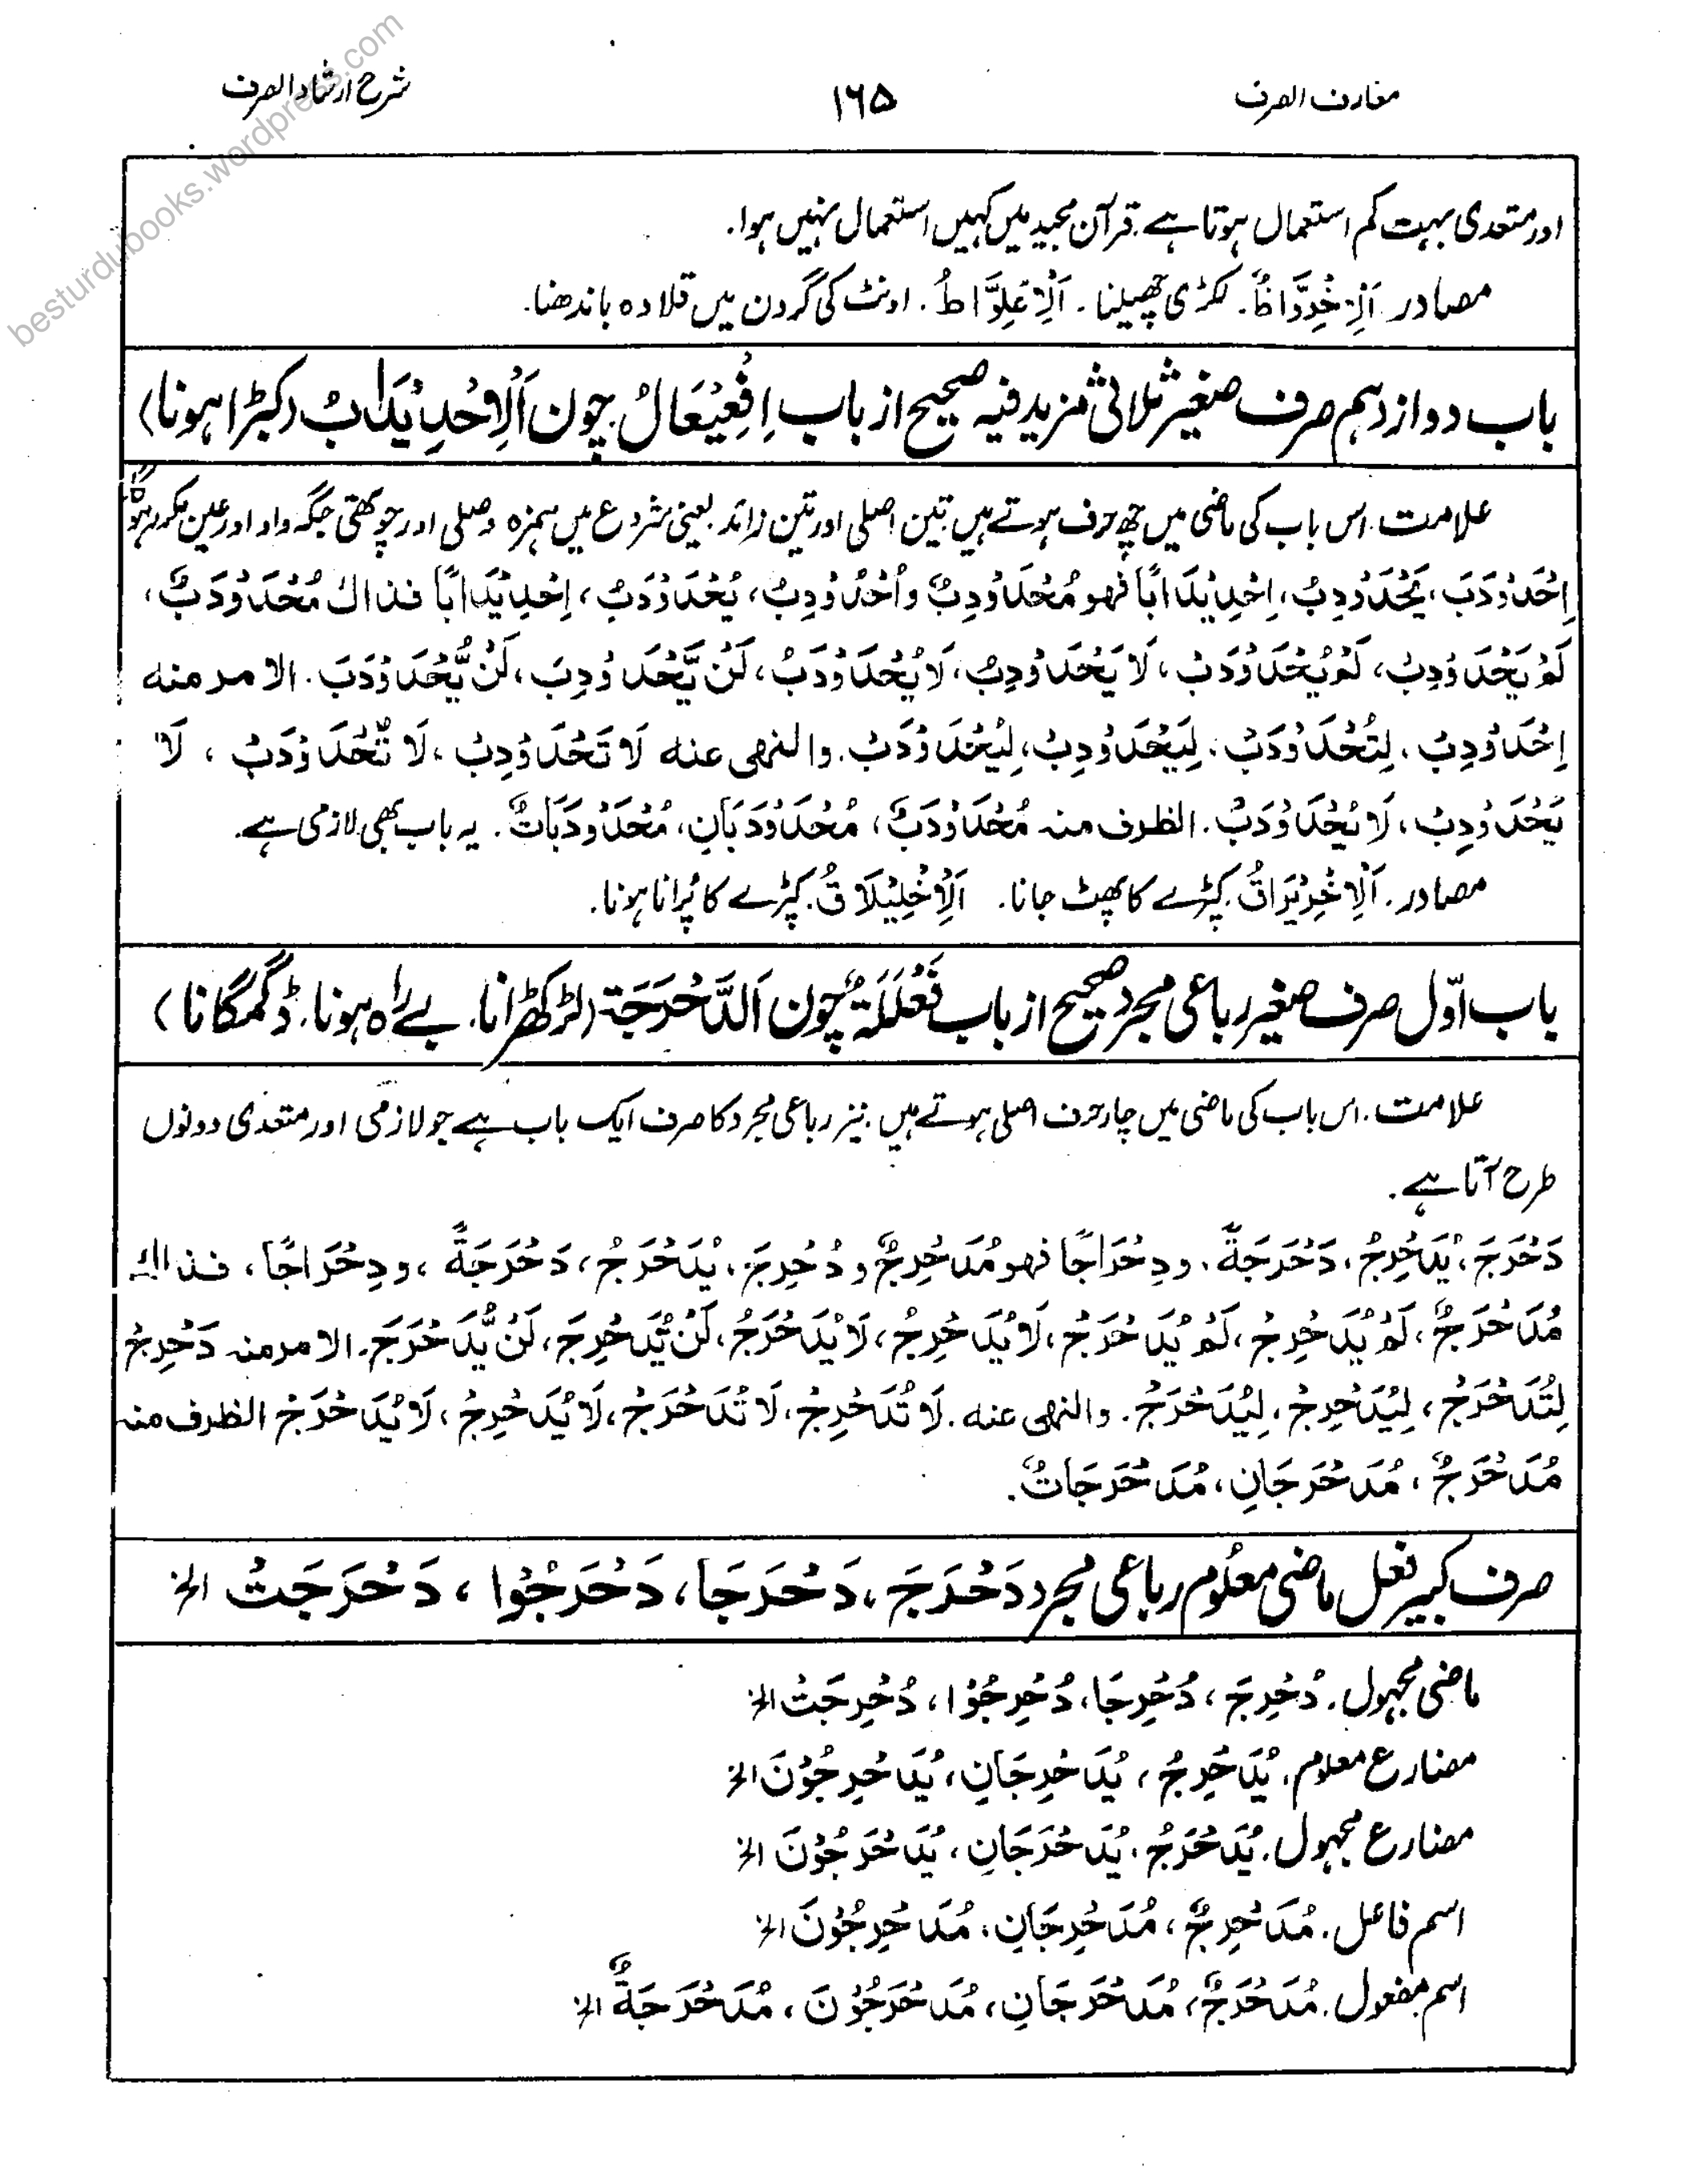 معارف الصرف
۱۶۵
شرح ارشاد الصرف
besturdubooks.wordpress.com
اور متعدی بہت کم استعمال ہوتا ہے. قرآن مجید میں کہیں استعمال نہیں ہوا.
مصادر. اَلْاِخْرِوَّاطُ. لکڑی چھیلنا. اَلْاِعْلِوَّاطُ. اونٹ کی گردن میں قلادہ باندھنا.
باب دوازدہم صرف صغیر ثلاثی مزید فیہ صحیح از باب اِفْعِیْعَالُ چون اَلْاِحْدِیْدَابُ (کبڑا ہونا)
علامت. اس باب کی ماضی میں چھ حرف ہوتے ہیں. تین اصلی اور تین زائد یعنی شروع میں ہمزہ وصلی اور چوتھی جگہ واو اور عین مکرر ہوگا
اِحْدَوْدَبَ، یَحْدَوْدِبُ، اِحْدِیْدَابًا فھو مُحْدَوْدِبٌ و اُحْدُوْدِبَ، یُحْدَوْدَبُ، اِحْدِیْدَابًا فذاك مُحْدَوْدَبٌ،
لَمْ یَحْدَوْدِبْ، لَمْ یُحْدَوْدَبْ، لَا یَحْدَوْدِبُ، لَا یُحْدَوْدَبُ، لَنْ یَّحْدَوْدِبَ، لَنْ یُّحْدَوْدَبَ. الامر منه
اِحْدَوْدِبْ. لِتُحْدَوْدَبْ. لِیَحْدَوْدِبْ، لِیُحْدَوْدَبْ. والنھی عنه لَا تَحْدَوْدِبْ، لَا تُحْدَوْدَبْ، لَا
یَحْدَوْدِبْ، لَا یُحْدَوْدَبْ. الظرف منه مُحْدَوْدَبٌ، مُحْدَوْدَبَانِ، مُحْدَوْدَبَاتٌ. یہ باب بھی لازمی ہے.
مصادر. اَلْاِخْرِیْرَاقُ. کپڑے کا پھٹ جانا. اَلْاِخْلِیْلَاقُ. کپڑے کا پُرانا ہونا.
باب اوّل صرف صغیر رباعی مجرد صحیح از باب فَعْلَلَةٌ چون اَلدَّحْرَجَة (لڑکھڑانا. بے راہ ہونا. ڈگمگانا)
علامت. اس باب کی ماضی میں چار حرف اصلی ہوتے ہیں. نیز رباعی مجرد کا صرف ایک باب ہے جو لازمی اور متعدی دونوں
طرح آتا ہے.
دَحْرَجَ، یُدَحْرِجُ، دَحْرَجَةً. و دِحْرَاجًا فھو مُدَحْرِجٌ و دُحْرِجَ، یُدَحْرَجُ، دَحْرَجَةً، و دِحْرَاجًا، فذاك
مُدَحْرَجٌ، لَمْ یُدَحْرِجْ، لَمْ یُدَحْرَجْ، لَا یُدَحْرِجُ، لَا یُدَحْرَجُ، لَنْ یُّدَحْرِجَ، لَنْ یُّدَحْرَجَ. الامر منه دَحْرِجْ
لِتُدَحْرَجْ، لِیُدَحْرِجْ، لِیُدَحْرَجْ. والنھی عنه. لَا تُدَحْرِجْ، لَا تُدَحْرَجْ، لَا یُدَحْرِجْ، لَا یُدَحْرَجْ الظرف منه
مُدَحْرَجٌ، مُدَحْرَجَانِ، مُدَحْرَجَاتٌ.
صرف کبیر فعل ماضی معلُوم رباعی مجرد دَحْرَجَ، دَحْرَجَا، دَحْرَجُوْا، دَحْرَجَتْ الخ
ماضی مجہول. دُحْرِجَ، دُحْرِجَا، دُحْرِجُوْا، دُحْرِجَتْ الخ
مضارع معلوم. یُدَحْرِجُ، یُدَحْرِجَانِ، یُدَحْرِجُوْنَ الخ
مضارع مجہول. یُدَحْرَجُ. یُدَحْرَجَانِ، یُدَحْرَجُوْنَ الخ
اسم فاعل. مُدَحْرِجٌ، مُدَحْرِجَانِ، مُدَحْرِجُوْنَ الخ
اسم مفعول. مُدَحْرَجٌ، مُدَحْرَجَانِ، مُدَحْرَجُوْنَ، مُدَحْرَجَةٌ الخ